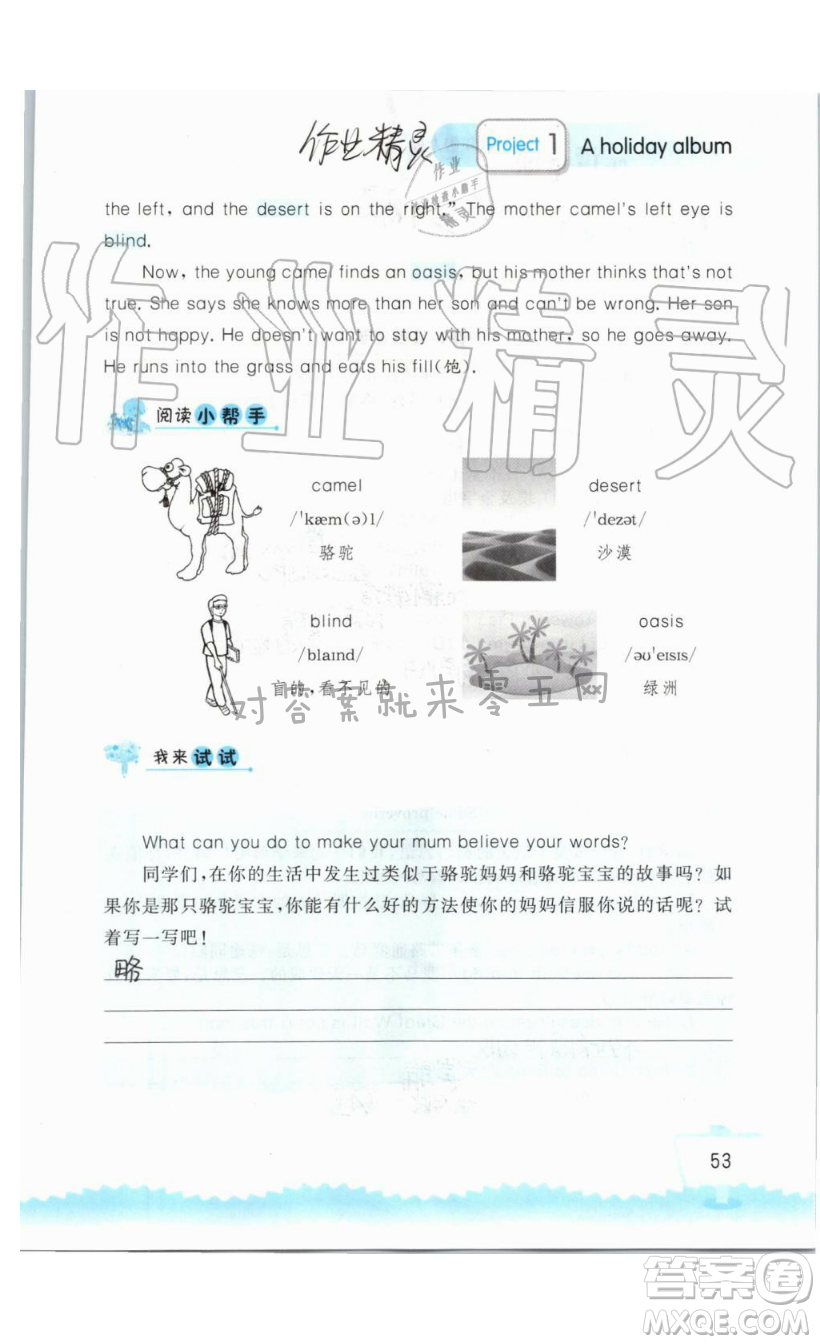 作业精灵
Project 1 A holiday album
作业
精灵
the left, and the desert is on the right." The mother camel's left eye is
blind.
Now, the young camel finds an oasis, but his mother thinks that's not
true. She says she knows more than her son and can't be wrong. Her son
is not happy. He doesn't want to stay with his mother, so he goes away.
He runs into the grass and eats his fill(饱).
作业精灵
阅读小帮手
camel
/ˈkæm(ə)l/
骆驼
desert
/ˈdezət/
沙漠
blind
/blaɪnd/
盲的,看不见的
oasis
/əʊˈeɪsɪs/
绿洲
对答案就来零五网
我来试试
What can you do to make your mum believe your words?
同学们,在你的生活中发生过类似于骆驼妈妈和骆驼宝宝的故事吗?如
果你是那只骆驼宝宝,你能有什么好的方法使你的妈妈信服你说的话呢?试
着写一写吧!
略
53
答案卷
MXQE.COM